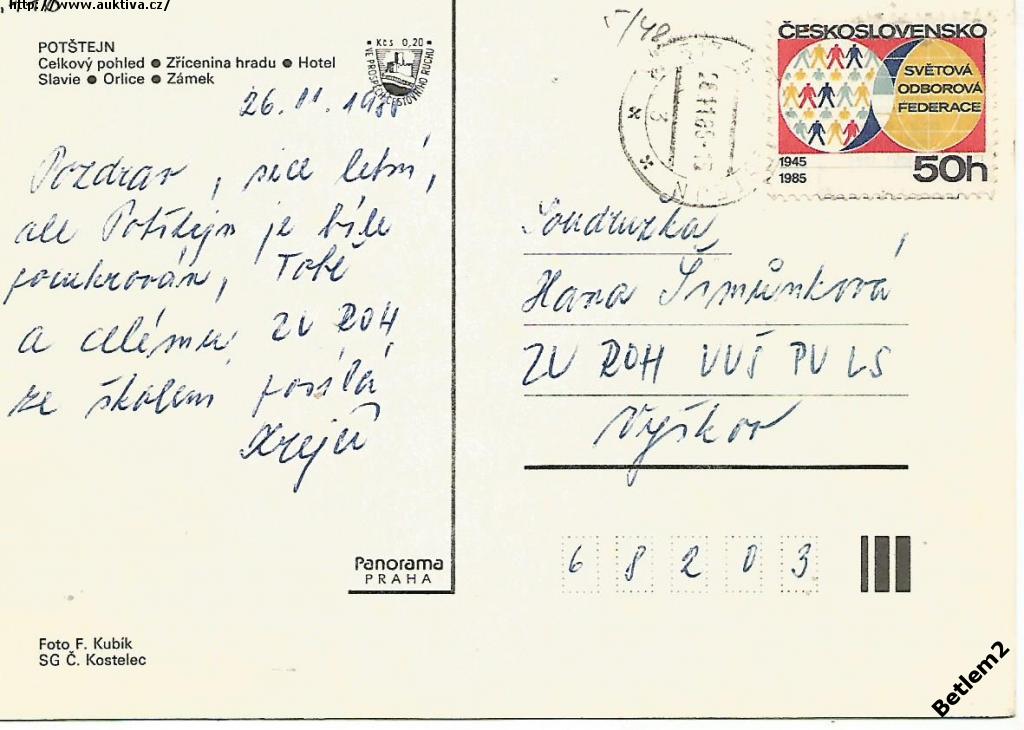 http://www.auktiva.cz/
POTŠTEJN
Celkový pohled ● Zřícenina hradu ● Hotel
Slavie ● Orlice ● Zámek
Kčs 0,20
VE PROSPĚCH CESTOVNÍHO RUCHU
26. 11. 1988
Pozdrav, sice letní,
ale Potštejn je bíle
pocukrován, Tobě
a celému ZV ROH
ze školení posílá
Krejčí
Panorama
PRAHA
Foto F. Kubík
SG Č. Kostelec
5/48
ČESKOSLOVENSKO
SVĚTOVÁ
ODBOROVÁ
FEDERACE
1945
1985
50h
Soudružka
Hana
ZV ROH VVŠ PV LS
Vyškov
68203
Betlem2